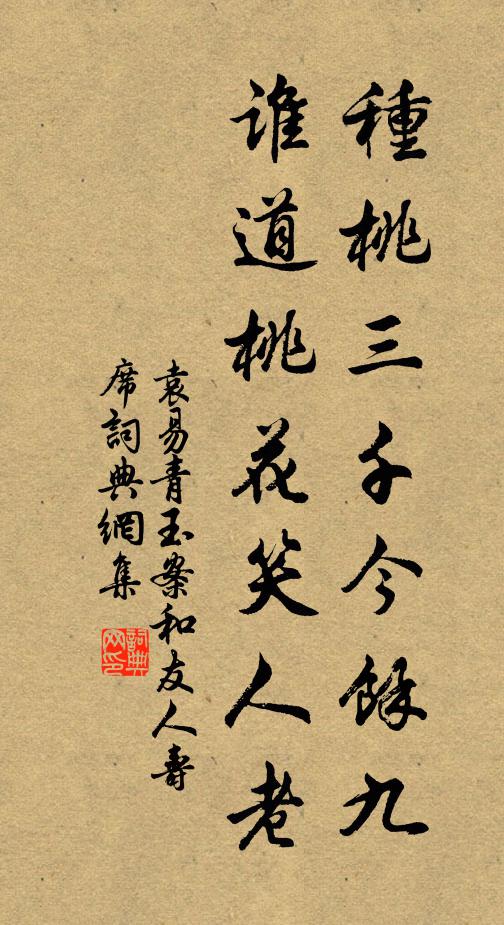 種桃三千今餘九
誰道桃花笑人老
袁易青玉案和友人壽
席詞典網集
詞典网印